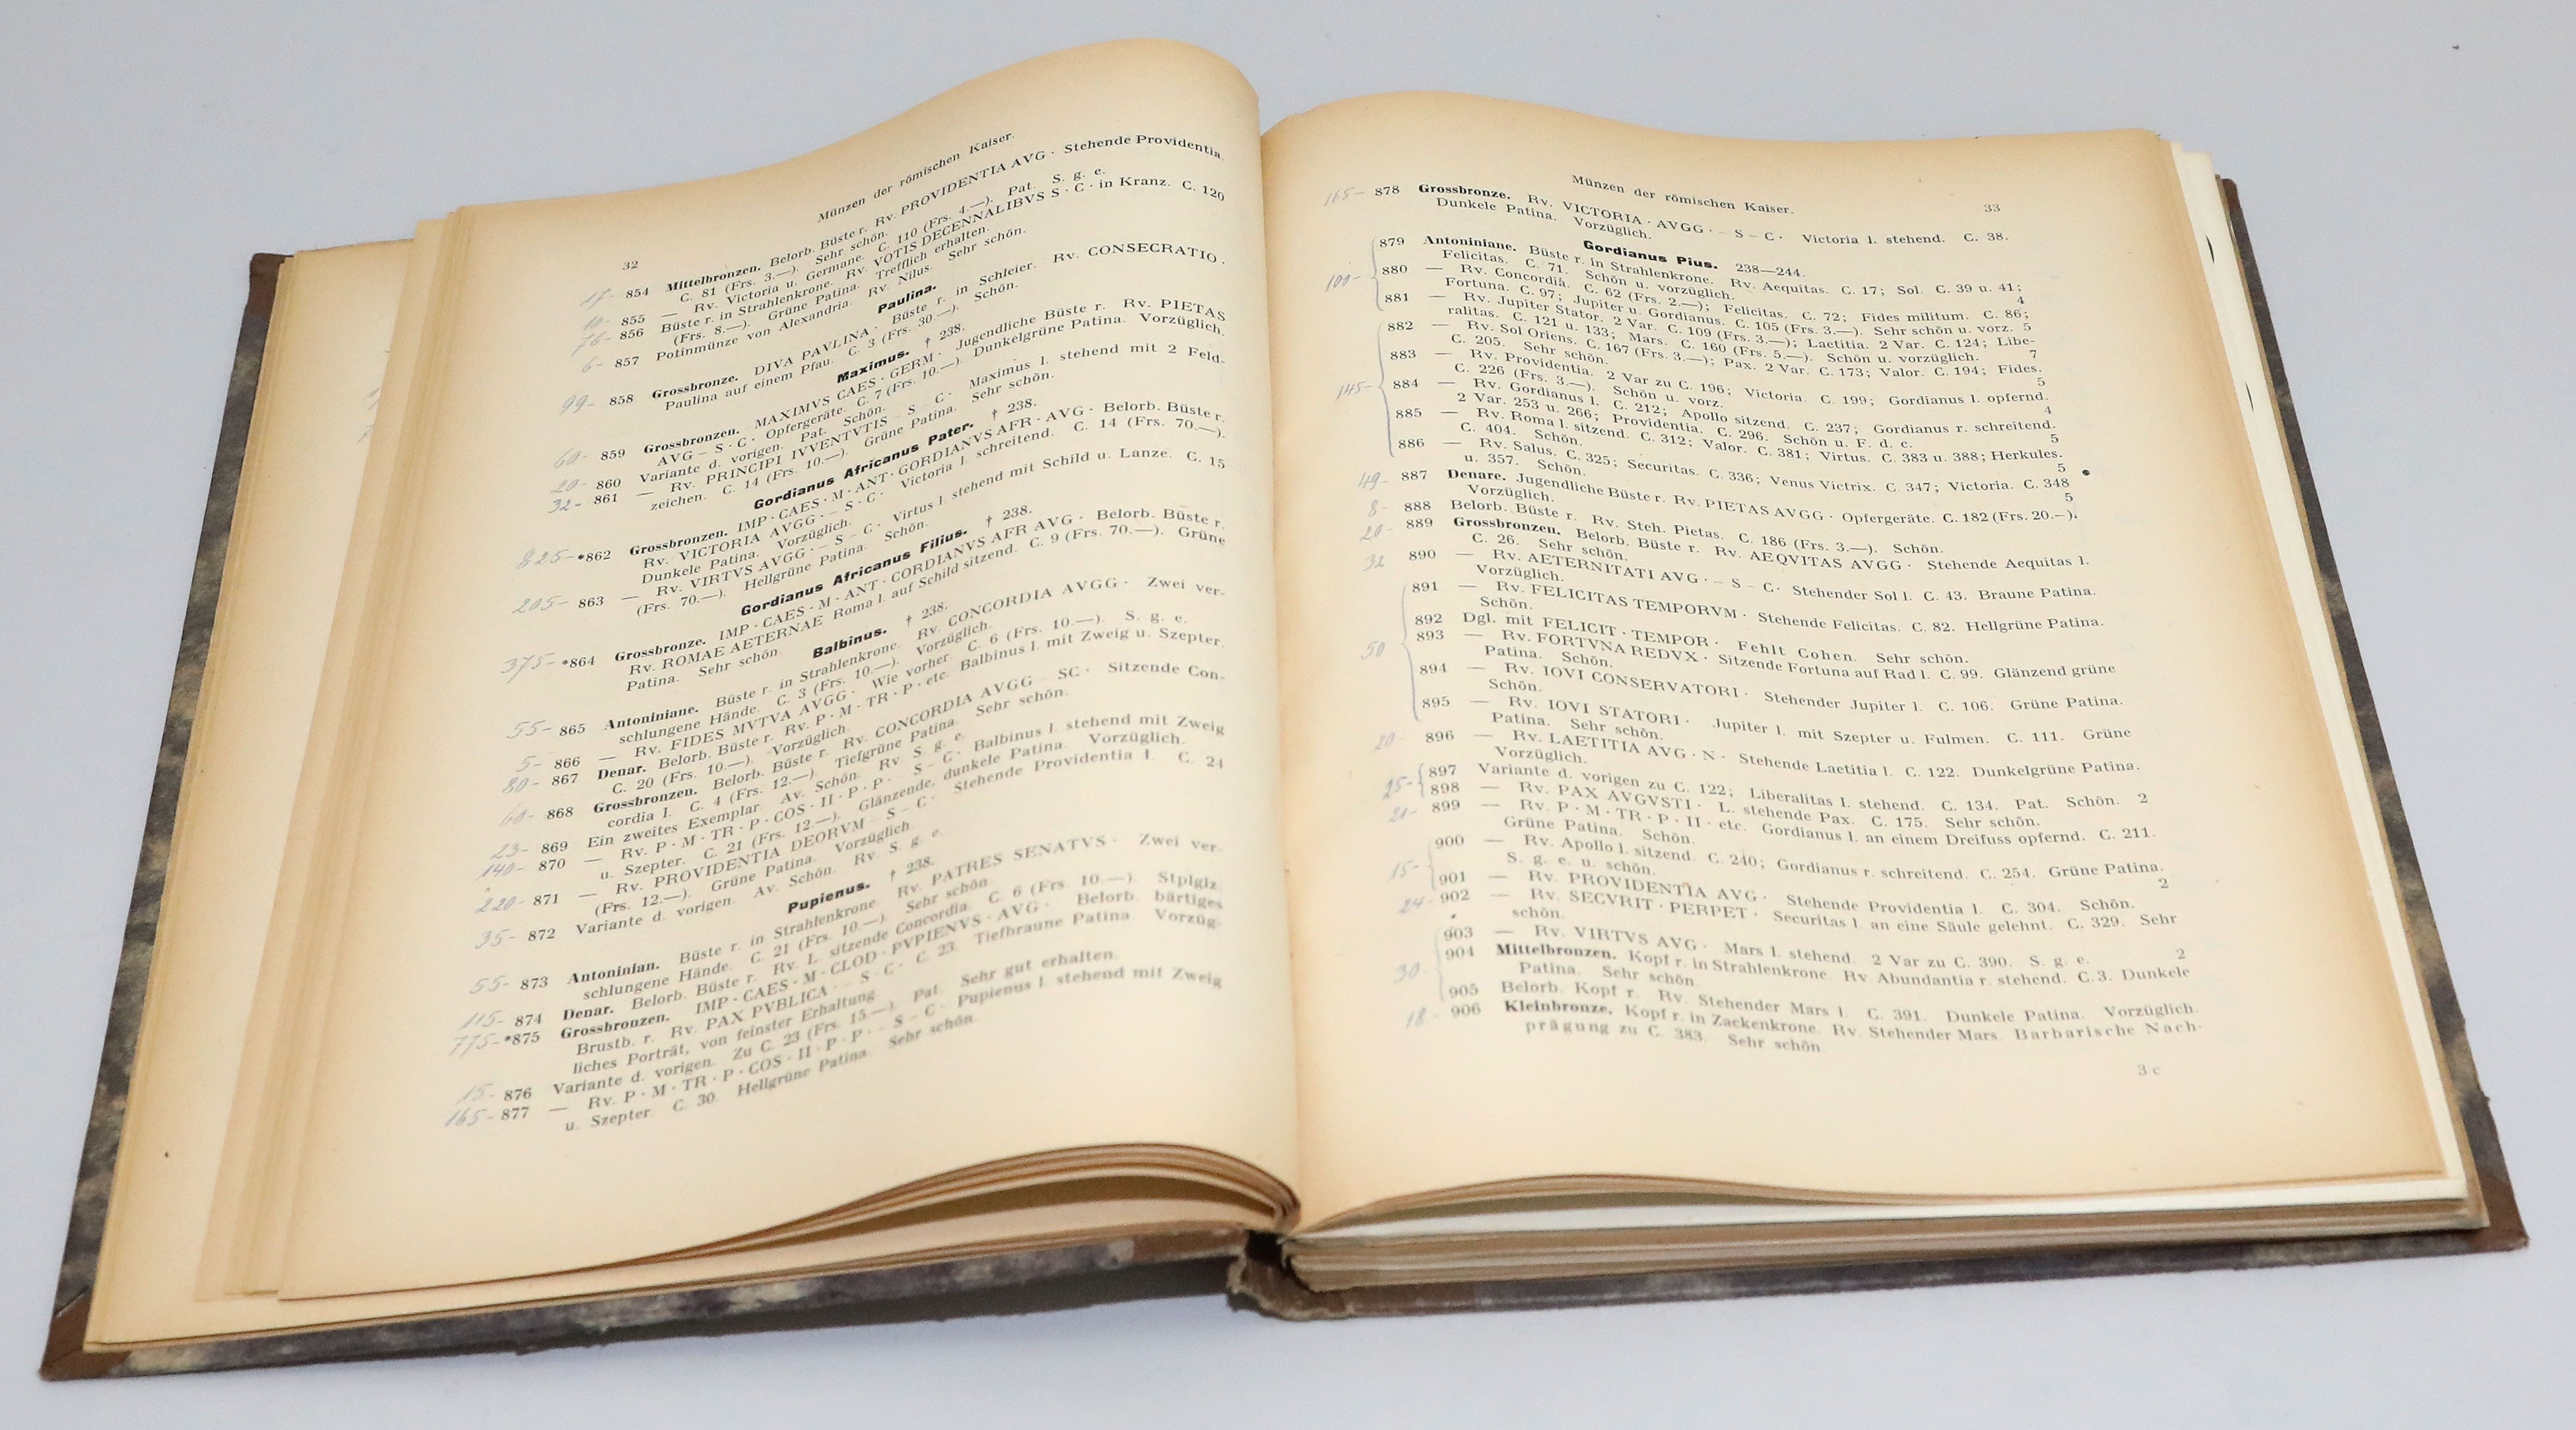 32
Münzen der römischen Kaiser.
17- 854 Mittelbronzen. Belorb. Büste r. Rv. PROVIDENTIA AVG · Stehende Providentia.
C. 81 (Frs. 3.—). Sehr schön. C. 110 (Frs. 4.—). Pat. S. g. e.
855 — Rv. Victoria u. Germane.
856 Büste r. in Strahlenkrone. Rv. VOTIS DECENNALIBVS S · C · in Kranz. C. 120
(Frs. 8.—). Grüne Patina. Trefflich erhalten.
6- 857 Potinmünze von Alexandria. Rv. Nilus. Sehr schön.
Paulina.
99- 858 Grossbronze. DIVA PAVLINA · Büste r. in Schleier. Rv. CONSECRATIO ·
Paulina auf einem Pfau. C. 3 (Frs. 30.—). Schön.
Maximus. † 238.
60- 859 Grossbronzen. MAXIMVS CAES · GERM · Jugendliche Büste r. Rv. PIETAS
AVG – S · C · Opfergeräte. C. 7 (Frs. 10.—). Dunkelgrüne Patina. Vorzüglich.
20- 860 Variante d. vorigen. Pat. Schön.
32- 861 — Rv. PRINCIPI IVVENTVTIS – S – C · Maximus l. stehend mit 2 Feld-
zeichen. C. 14 (Frs. 10.—). Grüne Patina. Sehr schön.
Gordianus Africanus Pater. † 238.
825- *862 Grossbronzen. IMP · CAES · M · ANT · GORDIANVS AFR · AVG · Belorb. Büste r.
Rv. VICTORIA AVGG · – S · C · Victoria l. schreitend. C. 14 (Frs. 70.—).
Dunkele Patina. Vorzüglich.
205- 863 — Rv. VIRTVS AVGG · – S – C · Virtus l. stehend mit Schild u. Lanze. C. 15
(Frs. 70.—). Hellgrüne Patina. Schön.
Gordianus Africanus Filius. † 238.
375- *864 Grossbronze. IMP · CAES · M · ANT · CORDIANVS AFR AVG · Belorb. Büste r.
Rv. ROMAE AETERNAE Roma l. auf Schild sitzend. C. 9 (Frs. 70.—). Grüne
Patina. Sehr schön.
Balbinus. † 238.
55- 865 Antoniniane. Büste r. in Strahlenkrone. Rv. CONCORDIA AVGG · Zwei ver-
schlungene Hände. C. 3 (Frs. 10.—). Vorzüglich.
5- 866 — Rv. FIDES MVTVA AVGG · Wie vorher. C. 6 (Frs. 10.—). S. g. e.
80- 867 Denar. Belorb. Büste r. Rv. P · M · TR · P · etc. Balbinus l. mit Zweig u. Szepter.
C. 20 (Frs. 10.—). Vorzüglich.
60- 868 Grossbronzen. Belorb. Büste r. Rv. CONCORDIA AVGG – SC · Sitzende Con-
cordia l. C. 4 (Frs. 12.—). Tiefgrüne Patina. Sehr schön.
23- 869 Ein zweites Exemplar. Av. Schön. Rv. S. g. e.
140- 870 — Rv. P · M · TR · P · COS · II · P · P · – S – C · Balbinus l. stehend mit Zweig
u. Szepter. C. 21 (Frs. 12.—). Glänzende, dunkele Patina. Vorzüglich.
220- 871 — Rv. PROVIDENTIA DEORVM – S – C · Stehende Providentia l. C. 24
(Frs. 12.—). Grüne Patina. Vorzüglich.
35- 872 Variante d. vorigen. Av. Schön. Rv. S. g. e.
Pupienus. † 238.
55- 873 Antoninian. Büste r. in Strahlenkrone. Rv. PATRES SENATVS · Zwei ver-
schlungene Hände. C. 21 (Frs. 10.—). Sehr schön.
115- 874 Denar. Belorb. Büste r. Rv. L. sitzende Concordia. C. 6 (Frs. 10.—). Stplglz.
775- *875 Grossbronzen. IMP · CAES · M · CLOD · PVPIENVS · AVG · Belorb. bärtiges
Brustb. r. Rv. PAX PVBLICA · – S · C · C. 23. Tiefbraune Patina. Vorzüg-
liches Porträt, von feinster Erhaltung.
15- 876 Variante d. vorigen. Zu C. 23 (Frs. 15.—). Pat. Sehr gut erhalten.
165- 877 — Rv. P · M · TR · P · COS · II · P · P · – S – C · Pupienus l. stehend mit Zweig
u. Szepter. C. 30. Hellgrüne Patina. Sehr schön.
Münzen der römischen Kaiser.
33
165- 878 Grossbronze. Rv. VICTORIA · AVGG · – S – C · Victoria l. stehend. C. 38.
Dunkele Patina. Vorzüglich.
Gordianus Pius. 238—244.
879 Antoniniane. Büste r. in Strahlenkrone. Rv. Aequitas. C. 17; Sol. C. 39 u. 41;
Felicitas. C. 71. Schön u. vorzüglich. 4
100- 880 — Rv. Concordia. C. 62 (Frs. 2.—); Felicitas. C. 72; Fides militum. C. 86;
Fortuna. C. 97; Jupiter u. Gordianus. C. 105 (Frs. 3.—). Sehr schön u. vorz. 5
881 — Rv. Jupiter Stator. 2 Var. C. 109 (Frs. 3.—); Laetitia. 2 Var. C. 124; Libe-
ralitas. C. 121 u. 133; Mars. C. 160 (Frs. 5.—). Schön u. vorzüglich. 7
882 — Rv. Sol Oriens. C. 167 (Frs. 3.—); Pax. 2 Var. C. 173; Valor. C. 194; Fides.
C. 205. Sehr schön. 5
883 — Rv. Providentia. 2 Var zu C. 196; Victoria. C. 199; Gordianus l. opfernd.
C. 226 (Frs. 3.—). Schön u. vorz. 4
145- 884 — Rv. Gordianus l. C. 212; Apollo sitzend. C. 237; Gordianus r. schreitend.
2 Var. 253 u. 266; Providentia. C. 296. Schön u. F. d. c. 5
885 — Rv. Roma l. sitzend. C. 312; Valor. C. 381; Virtus. C. 383 u. 388; Herkules.
C. 404. Schön. 5
886 — Rv. Salus. C. 325; Securitas. C. 336; Venus Victrix. C. 347; Victoria. C. 348
u. 357. Schön. 5
49- 887 Denare. Jugendliche Büste r. Rv. PIETAS AVGG · Opfergeräte. C. 182 (Frs. 20.—).
Vorzüglich.
8- 888 Belorb. Büste r. Rv. Steh. Pietas. C. 186 (Frs. 3.—). Schön.
20- 889 Grossbronzen. Belorb. Büste r. Rv. AEQVITAS AVGG · Stehende Aequitas l.
C. 26. Sehr schön.
32 890 — Rv. AETERNITATI AVG · – S – C · Stehender Sol l. C. 43. Braune Patina.
Vorzüglich.
891 — Rv. FELICITAS TEMPORVM · Stehende Felicitas. C. 82. Hellgrüne Patina.
Schön.
892 Dgl. mit FELICIT · TEMPOR · Fehlt Cohen. Sehr schön.
50 893 — Rv. FORTVNA REDVX · Sitzende Fortuna auf Rad l. C. 99. Glänzend grüne
Patina. Schön.
894 — Rv. IOVI CONSERVATORI · Stehender Jupiter l. C. 106. Grüne Patina.
Schön.
895 — Rv. IOVI STATORI · Jupiter l. mit Szepter u. Fulmen. C. 111. Grüne
Patina. Sehr schön.
20- 896 — Rv. LAETITIA AVG · N · Stehende Laetitia l. C. 122. Dunkelgrüne Patina.
Vorzüglich.
25- 897 Variante d. vorigen zu C. 122; Liberalitas l. stehend. C. 134. Pat. Schön. 2
898 — Rv. PAX AVGVSTI · L. stehende Pax. C. 175. Sehr schön.
21- 899 — Rv. P · M · TR · P · II · etc. Gordianus l. an einem Dreifuss opfernd. C. 211.
Grüne Patina. Schön.
900 — Rv. Apollo l. sitzend. C. 240; Gordianus r. schreitend. C. 254. Grüne Patina.
S. g. e. u. schön. 2
15- 901 — Rv. PROVIDENTIA AVG · Stehende Providentia l. C. 304. Schön.
24- 902 — Rv. SECVRIT · PERPET · Securitas l. an eine Säule gelehnt. C. 329. Sehr
schön.
903 — Rv. VIRTVS AVG · Mars l. stehend. 2 Var zu C. 390. S. g. e. 2
30- 904 Mittelbronzen. Kopf r. in Strahlenkrone. Rv. Abundantia r. stehend. C. 3. Dunkele
Patina. Sehr schön.
905 Belorb. Kopf r. Rv. Stehender Mars l. C. 391. Dunkele Patina. Vorzüglich.
18- 906 Kleinbronze. Kopf r. in Zackenkrone. Rv. Stehender Mars. Barbarische Nach-
prägung zu C. 383. Sehr schön.
3 c